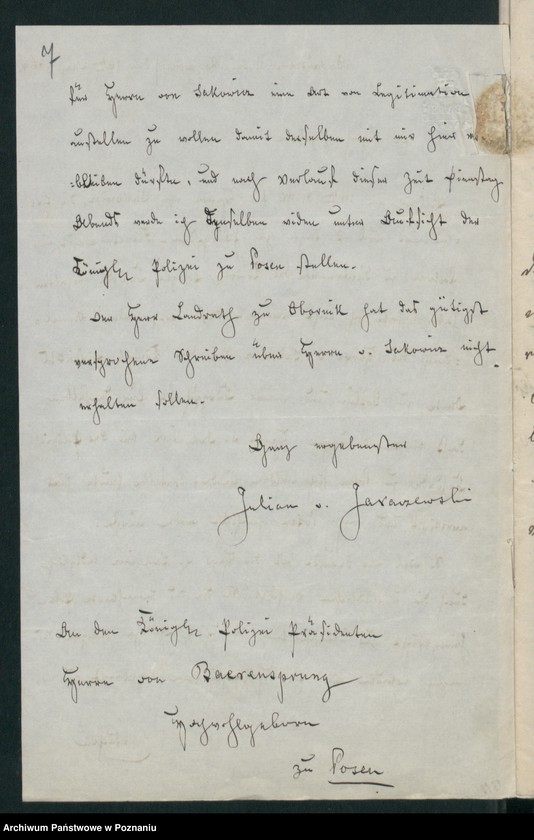 7
für Herrn von Sakowicz eine Art von Legitimation
ausstellen zu wollen damit derselben mit mir hier
=bleiben dürfte, und nach Verlauf dieser Zeit Dienstag
Abends werde ich denselben wieder unter Aufsicht der
Königl. Polizei zu Posen stellen.
Der Herr Landrath zu Obornik hat das gütigst
versprochene Schreiben über Herrn v. Sakowicz nicht
erhalten sollen.
Ganz ergebenster
Julian v. Jaraczewski
An den Königl. Polizei Präsidenten
Herrn von Baerensprung
Hochwohlgeborn
zu Posen
Archiwum Państwowe w Poznaniu